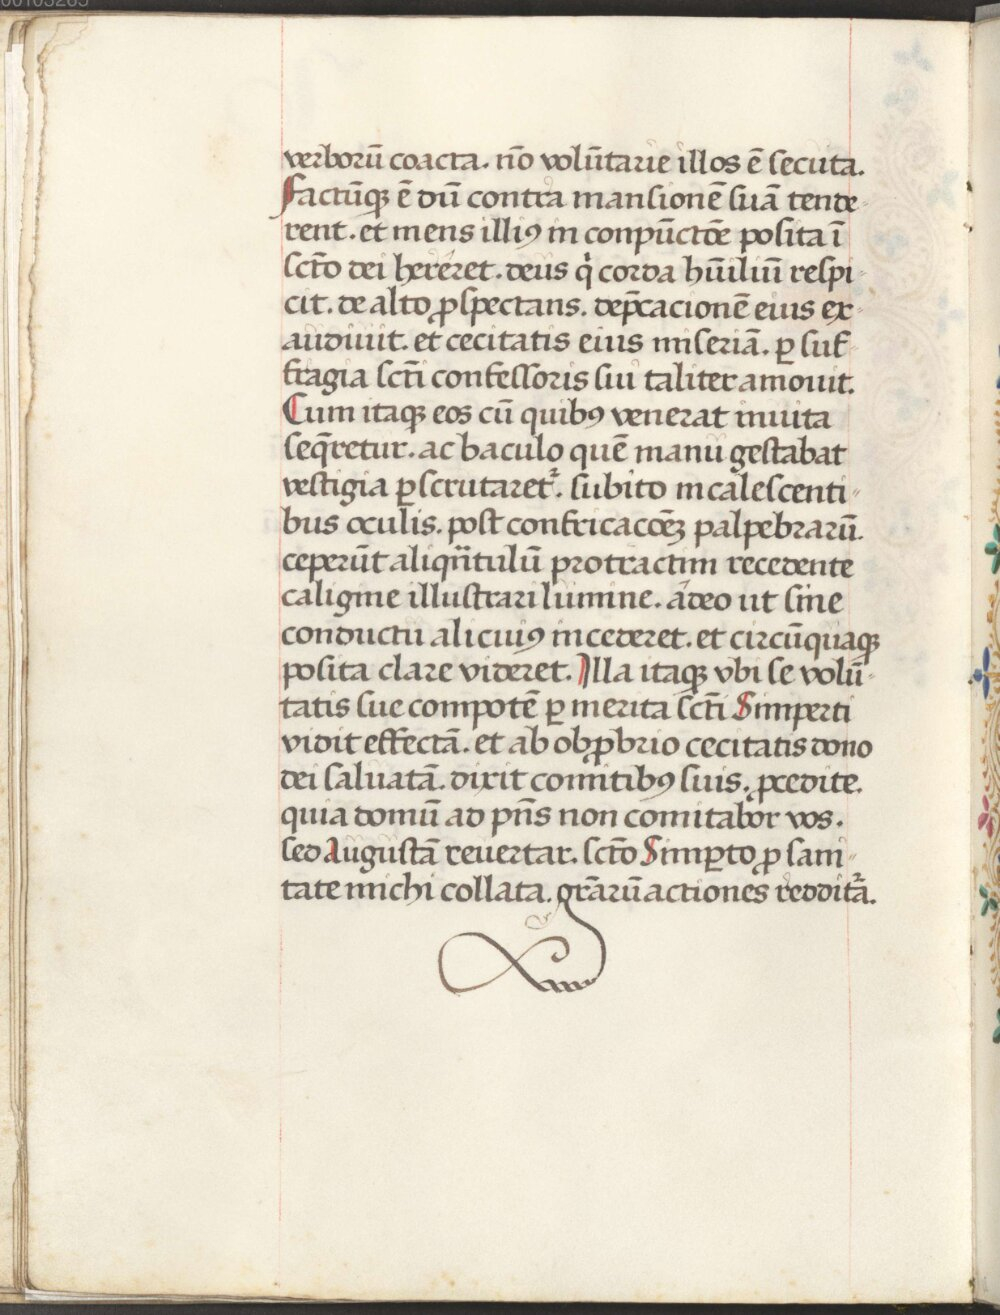 00103285
verborū coacta. nō volūtarie illos ē secuta.
Factūqꝫ ē dū contra mansionē suā tende-
rent. et mens illiꝰ in conpūctōe posita ī
scto dei hereret. deus qi corda hūiliū respi-
cit. de alto ꝓspectans. dep̄cacionē eius ex-
audiuit. et cecitatis eius miseriā. ꝑ suf-
fragia scti confessoris sui taliter amouit.
Cum itaqꝫ eos cū quibꝰ venerat inuita
seq̄retur. ac baculo quē manu gestabat
vestigia ꝑscrutaret᷑. subito incalescenti-
bus oculis. post confricaccōeꝫ palpebrarū.
ceperūt aliqn̄tulū protractim recedente
caligine illustrari lumine. adeo ut sine
conductu alicuiꝰ incederet. et circūquaqꝫ
posita clare videret. Illa itaqꝫ vbi se volū-
tatis sue compotē ꝑ merita scti Simperti
vidit effectā. et ab obꝓbrio cecitatis dono
dei saluatā. dixit comitibꝰ suis. ꝓcedite.
quia domū ad pn̄s non comitabor vos.
sed Augustā reuertar. scto Simꝑto ꝓ sani-
tate michi collata. grāꝝ actiones redditā.